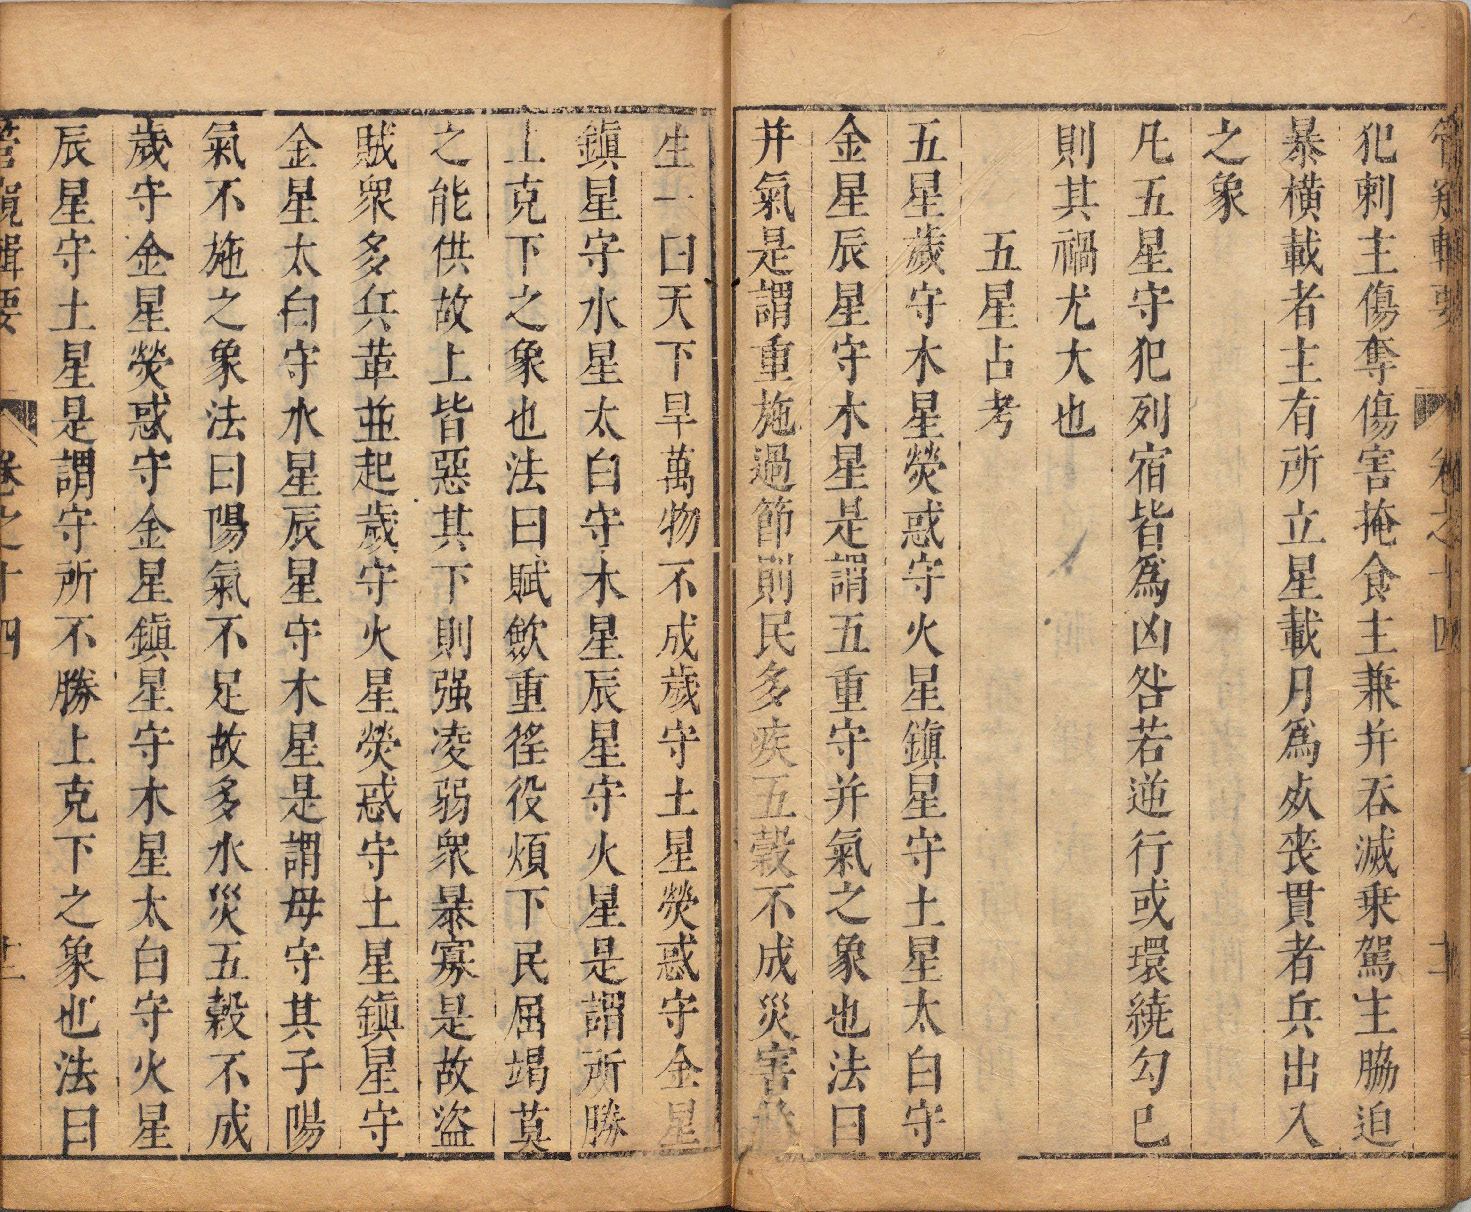 管窺輯要 卷之十四 十二
犯刺主傷奪傷害掩食主兼并吞滅乗駕主脇迫
暴橫載者主有所立星載月爲㱕喪貫者兵出入
之象
凡五星守犯列宿皆爲凶咎若逆行或環繞勾巳
則其禍尤大也
五星占考
五星歲守木星熒惑守火星鎮星守土星太白守
金星辰星守水星是謂五重守并氣之象也法曰
并氣是謂重施過節則民多疾五穀不成災害
生一曰天下旱萬物不成歲守土星熒惑守金星
鎮星守水星太白守木星辰星守火星是謂所勝
上克下之象也法曰賦歛重徭役煩下民屈竭莫
之能供故上皆惡其下則强凌弱衆暴寡是故盜
賊衆多兵革並起歲守火星熒惑守土星鎮星守
金星太白守水星辰星守木星是謂母守其子陽
氣不施之象法曰陽氣不足故多水災五穀不成
歲守金星熒惑守金星鎮星守木星太白守火星
辰星守土星是謂守所不勝上克下之象也法曰
管窺輯要 卷之十四 十二